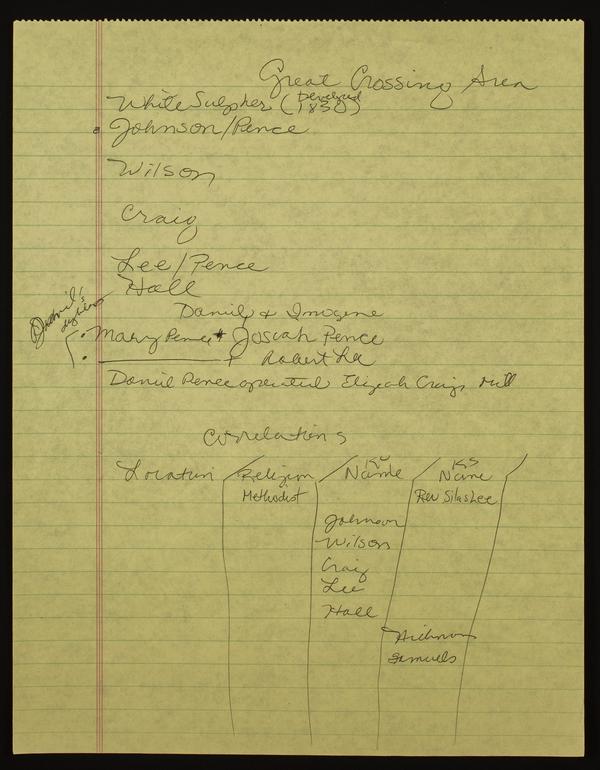 Great Crossing Area
White Sulpher (Developed 1830)
Johnson/Pence
Wilson
Craig
Lee/Pence
Hall
Daniel & Imogene
Daniel's
Mary Pence + Josiah Pence
+ Robert Lee
Daniel Pence operated Elizeah Craigs mill
Correlations
Location / Religion / KY Name / KS Name /
Methodist Rev Silas Lee
Johnson
Wilson
Craig
Lee
Hall
Hickman
Samuels